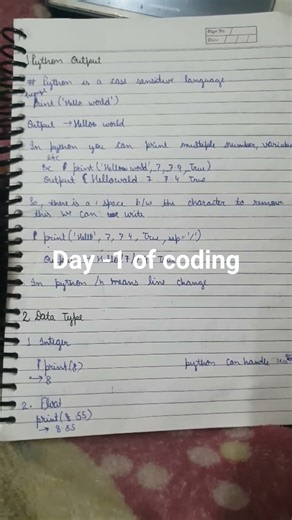 Page No.
Date
1 Python Output
# Python is a case sensitive language
print ('Hello world')
Output → Hellow world
In python you can print multiple number, variable
etc
Ex print ('Hellow world', 7, 7.4, True)
Output Hellowald 7 7.4 True
So, there is a space b/w the character to remove
this we can write
print ('Hello', 7, 7.4, True, sep='/')
Day -1 of coding
In python /n means line change
2 Data Type
1 Integer
print (8)
→ 8
python can handle
2. Float
print (8.55)
→ 8.55